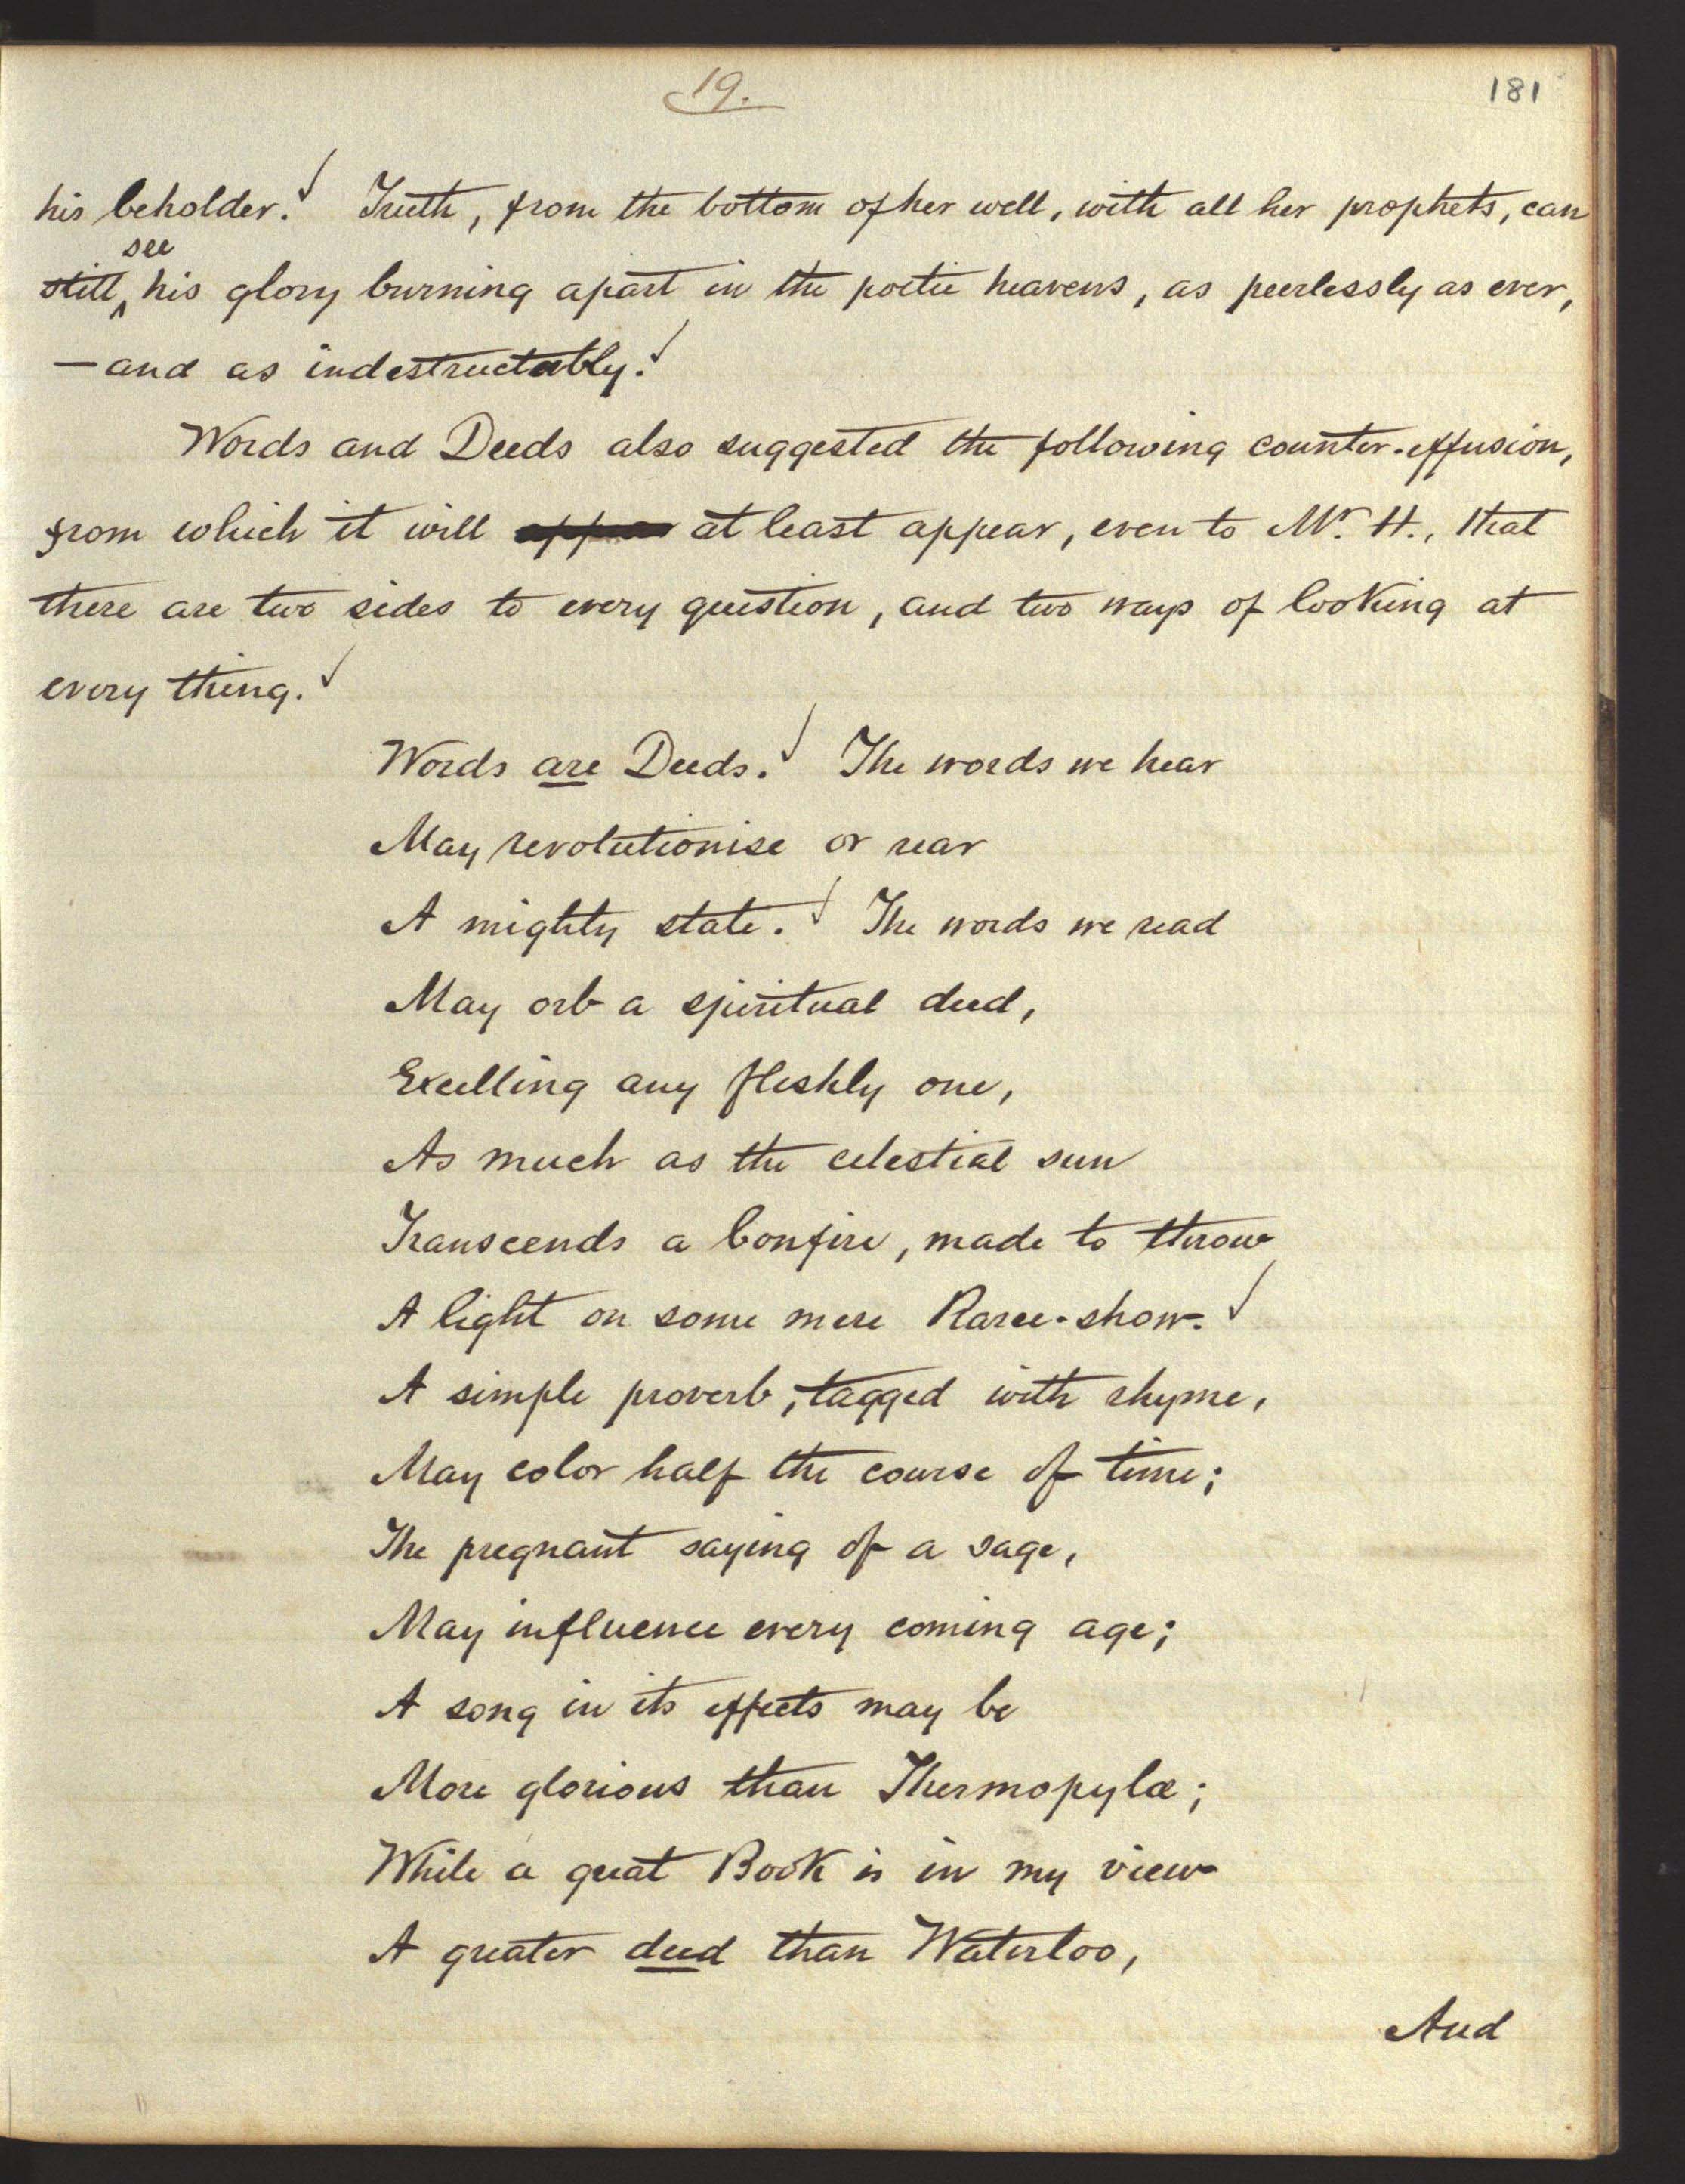 19.
181
his beholder. Truth, from the bottom of her well, with all her prophets, can
see
still his glory burning apart in the poetic heavens, as peerlessly as ever,
—and as indestructably.
Words and Deeds also suggested the following counter-effusion,
from which it will appear at least appear, even to Mr. H., that
there are two sides to every question, and two ways of looking at
every thing.
Words are Deeds. The words we hear
May revolutionise or rear
A mighty state. The words we read
May orb a spiritual deed,
Excelling any fleshly one,
As much as the celestial sun
Transcends a bonfire, made to throw
A light on some mere Raree-show.
A simple proverb, tagged with rhyme,
May color half the course of time;
The pregnant saying of a sage,
May influence every coming age;
A song in its effects may be
More glorious than Thermopylæ;
While a great Book is in my view
A greater deed than Waterloo,
And